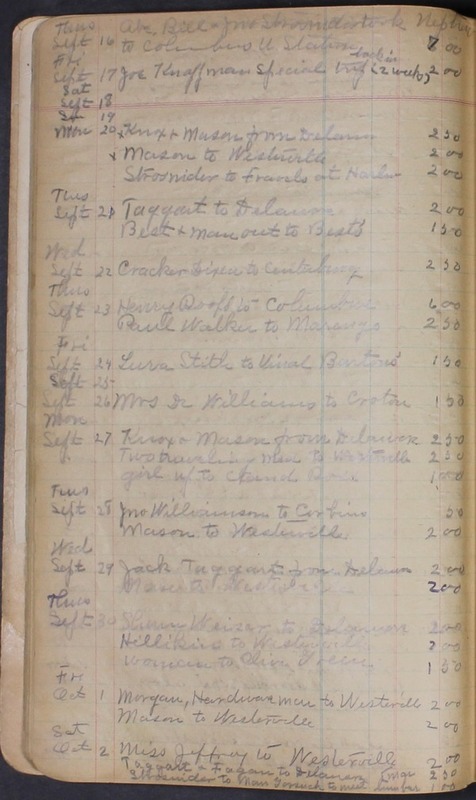 Thurs Abe, Bill & Jno Strosnider took
Sept 16 to Columbus U Station 7 00
Fri
Sept 17 Joe Knaffman Special trip (2 weeks) 2 00
Sat
Sept 18
19
Mon 20 x Knox & Mason from Delaware 2 50
x Mason to Westerville 2 00
Strosnider to Fravels at 2 00
Tues
Sept 21 Taggart to Delaware 2 00
Best & man out to Bests 1 50
Wed
Sept 22 Cracker to Centaburg 2 50
Thurs
Sept 23 Henry to Columbus 6 00
Paul Walker to Marengo 2 50
Fri
Sept 24 Lura Stith to Burtons' 1 50
Sept 25
Sept 26 Mrs Dr Williams to Croton 1 50
Mon
Sept 27 Knox & Mason from Delaware 2 50
Two traveling men to Westerville 2 50
girl up to 1 00
Tues
Sept 28 Jno Williamson to Corbins 50
Mason to Westerville 2 00
Wed
Sept 29 Jack Taggart from Delaware 2 00
2 00
Thurs
Sept 30 to Delaware 2 00
Hillikins to Westerville 2 00
woman to Olive Green 1 50
Fri
Oct 1 Morgan, Hardware man to Westerville 2 00
Mason to Westerville 2 00
Sat
Oct 2 Miss Jeffrey to Westerville 2 00
Taggart & Fagan to Delaware 2 50
Strosnider to Van to meet lumber 1 00